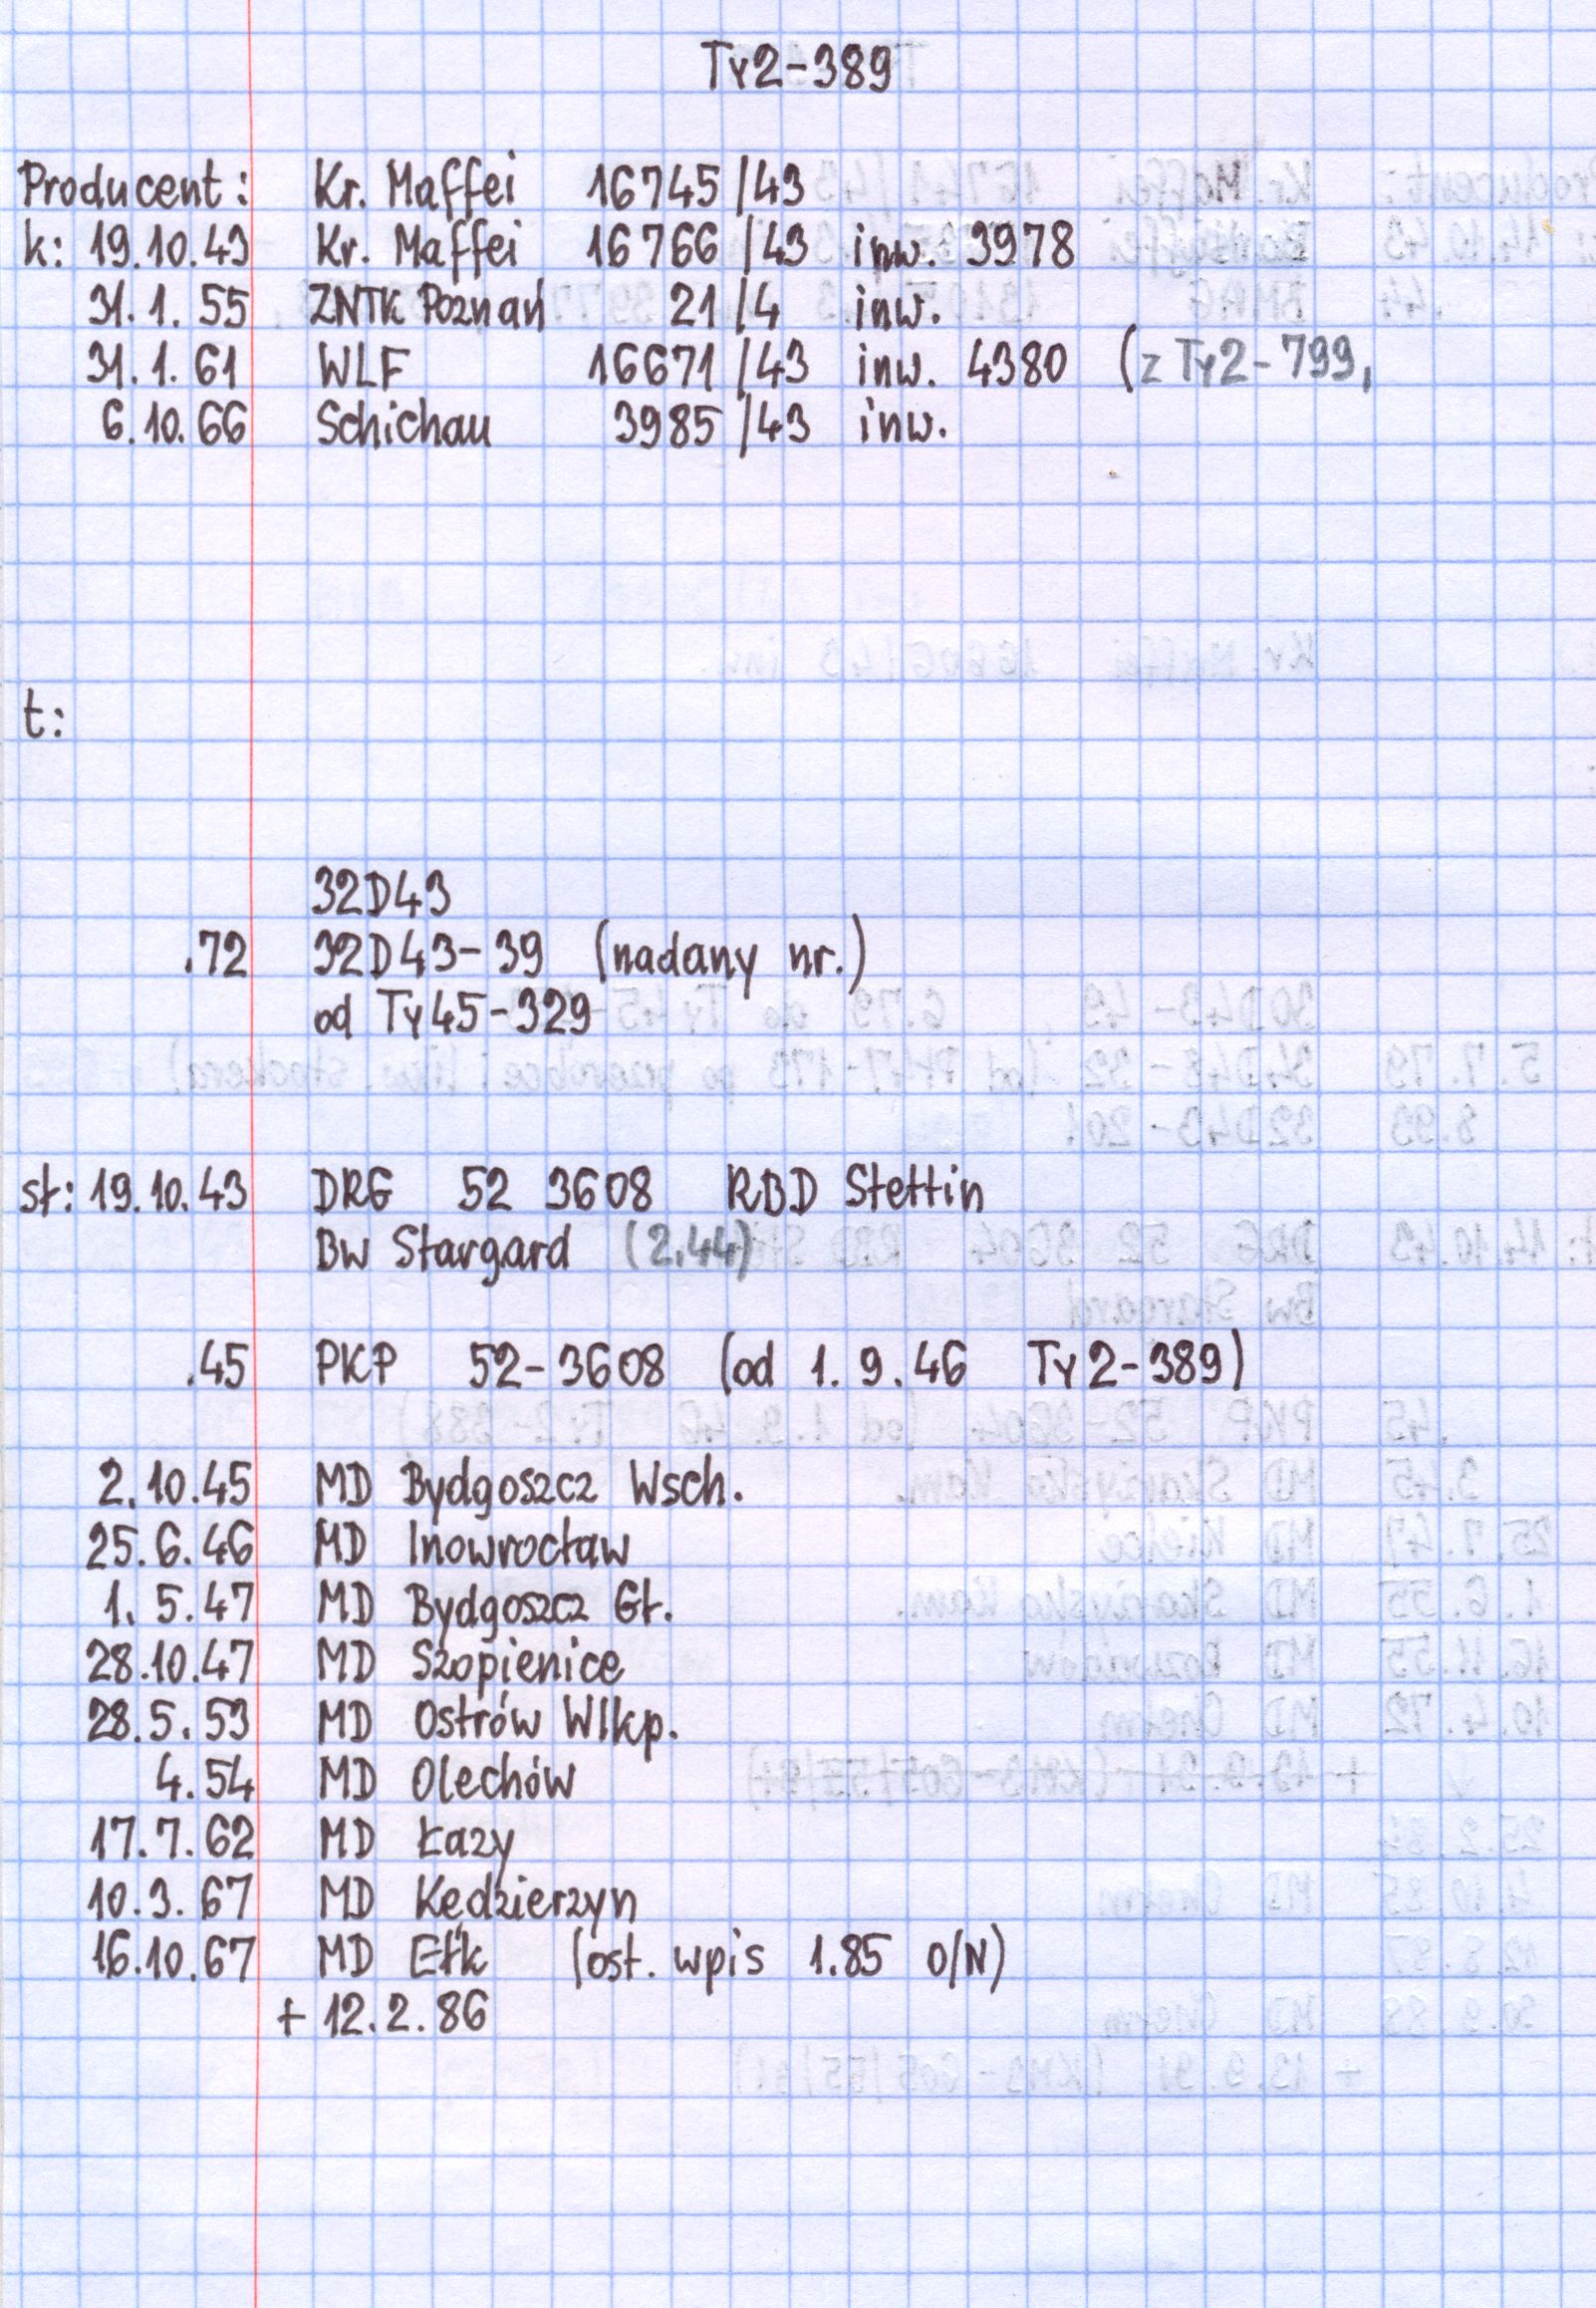 Ty2-389
Producent: Kr. Maffei 16745/43
k: 19.10.43 Kr. Maffei 16766/43 inw. 3978
31.1.55 ZNTK Poznań 21/4 inw.
31.1.61 WLF 16671/43 inw. 4380 (z Ty2-799,
6.10.66 Schichau 3985/43 inw.
t:
32D43
.72 32D43-39 (nadany nr.)
od Ty45-329
st: 19.10.43 DRG 52 3608 RBD Stettin
Bw Stargard (2.44)
.45 PKP 52-3608 (od 1.9.46 Ty2-389)
2.10.45 MD Bydgoszcz Wsch.
25.6.46 MD Inowrocław
1.5.47 MD Bydgoszcz Gł.
28.10.47 MD Szopienice
28.5.53 MD Ostrów Wlkp.
4.54 MD Olechów
17.7.62 MD Łazy
10.3.67 MD Kędzierzyn
16.10.67 MD Ełk (ost. wpis 1.85 O/N)
+ 12.2.86